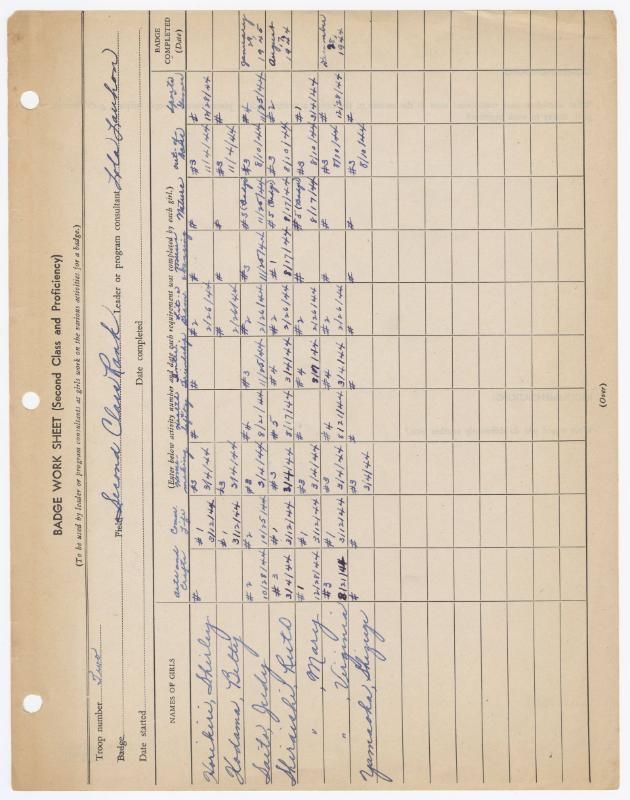 BADGE WORK SHEET (Second Class and Proficiency)
(To be used by leader or program consultants as girls work on the various activities for a badge.)
Troop number Two
Badge Field Second Class Rank Leader or program consultant Lola
Date started Date completed
(Enter below activity number and date each requirement was completed by each girl.)
NAMES OF GIRLS Arts and Crafts Home making Nature Sports BADGE COMPLETED (Date)
Horikiri, Shirley # #1 3/12/44 #3 3/4/44 # # #2 2/26/44 # # #3 11/4/44 # 12/28/44
Kodama, Betty #1 3/12/44 #3 3/4/44 2/26/44 # # #3 11/4/44 #
Saito, Judy #2 10/28/44 #2 10/25/44 #3 3/4/44 #4 8/21/44 #3 11/25/44 #2 2/26/44 #3 11/25/44 #5 (Badge) 11/25/44 #3 8/10/44 #4 11/25/44 January 29, 1945
Shiraishi, Ruth #3 3/4/44 #1 3/12/44 #3 3/4/44 #5 8/17/44 #4 3/4/44 #2 2/26/44 #1 8/17/44 #5 (Badge) 8/17/44 #3 8/10/44 #2 August 1944
" , Mary #1 12/28/44 #1 3/12/44 #3 3/4/44 #4 #2 2/26/44 #5 (Badge) 8/17/44 #3 8/10/44 #1 3/4/44
" , Virginia #3 8/21/44 #1 3/12/44 #3 3/4/44 #4 8/21/44 #4 3/4/44 #2 2/26/44 # #3 8/10/44 # 12/28/44 December 28, 1944
Yamaoka, Shizuye # #3 3/4/44 # # #3 8/10/44 #
(Over)